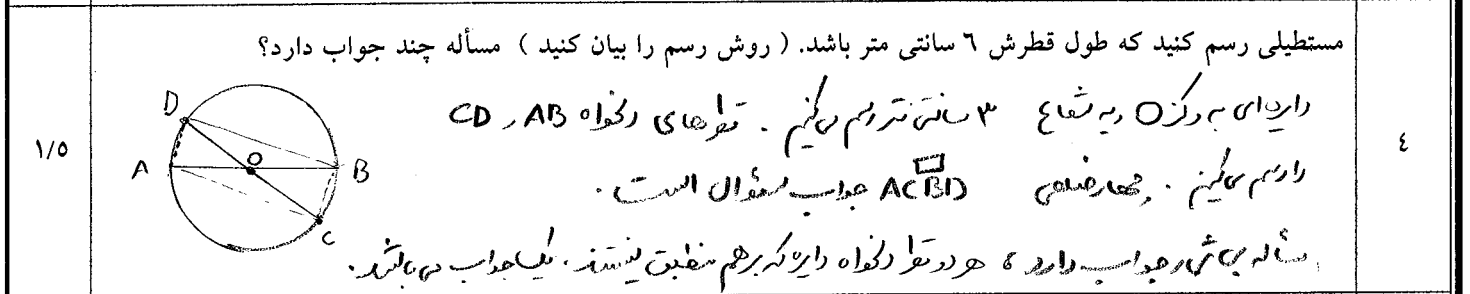 مستطیلی رسم کنید که طول قطرش ٦ سانتی متر باشد. ( روش رسم را بیان کنید ) مسأله چند جواب دارد؟
دایره‌ای به مرکز O و به شعاع ۳ سانتی متر رسم می‌کنیم . قطرهای دلخواه AB و CD
را رسم می‌کنیم . چهارضلعی ACBD جواب سئوال است .
مسأله بی شمار جواب دارد ، هر دو قطر دلخواه دایره که بر هم منطبق نیستند ، یک جواب می‌باشد .
٤
١/٥
D
A
O
B
C